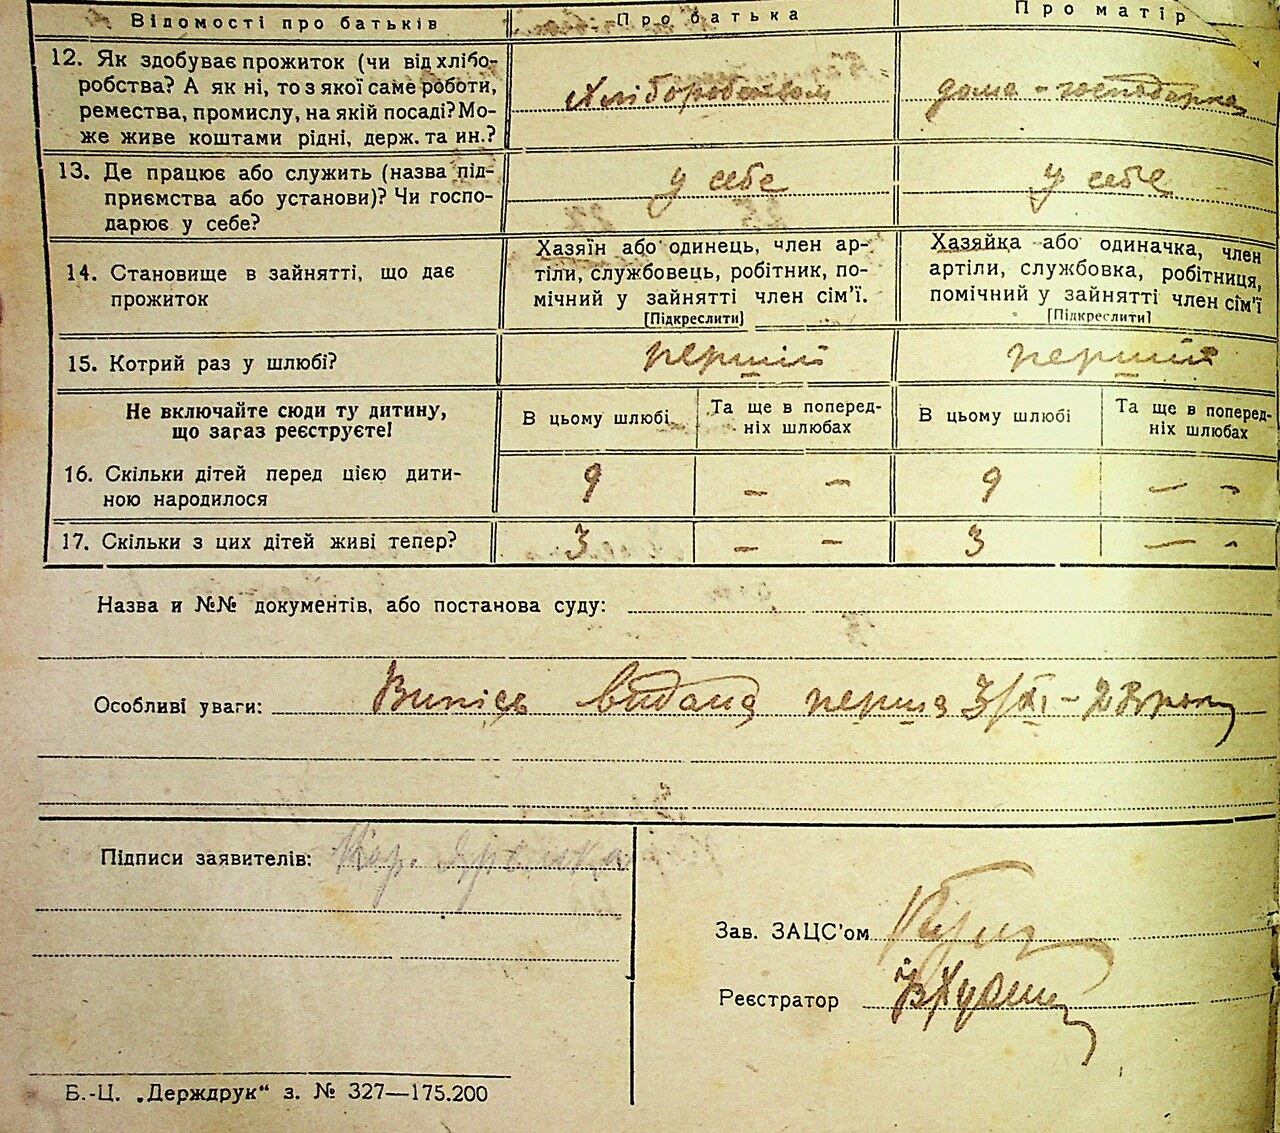 Відомості про батьків Про батька Про матір
12. Як здобуває прожиток (чи від хлібо-
робства? А як ні, то з якої саме роботи,
ремества, промислу, на якій посаді? Мо-
же живе коштами рідні, держ. та ин.?
Хліборобством дома - господарка
13. Де працює або служить (назва під-
приємства або установи)? Чи госпо-
дарює у себе?
у себе у себе
14. Становище в зайнятті, що дає
прожиток
Хазяїн або одинець, член ар-
тіли, службовець, робітник, по-
мічний у зайнятті член сім'ї.
[Підкреслити]
Хазяйка або одиначка, член
артіли, службовка, робітниця,
помічний у зайнятті член сім'ї
[Підкреслити]
15. Котрий раз у шлюбі? перший перший
Не включайте сюди ту дитину,
що загаз реєструєте!
В цьому шлюбі
Та ще в поперед-
ніх шлюбах
В цьому шлюбі
Та ще в поперед-
ніх шлюбах
16. Скільки дітей перед цією дити-
ною народилося
9 — — 9 — —
17. Скільки з цих дітей живі тепер? 3 — — 3 — -
Назва и №№ документів, або постанова суду:
Особливі уваги: Випісь видана перша 3/XI - 28 року
Підписи заявителів:
Зав. ЗАЦС'ом
Реєстратор
Б.-Ц. „Держдрук“ з. № 327—175.200